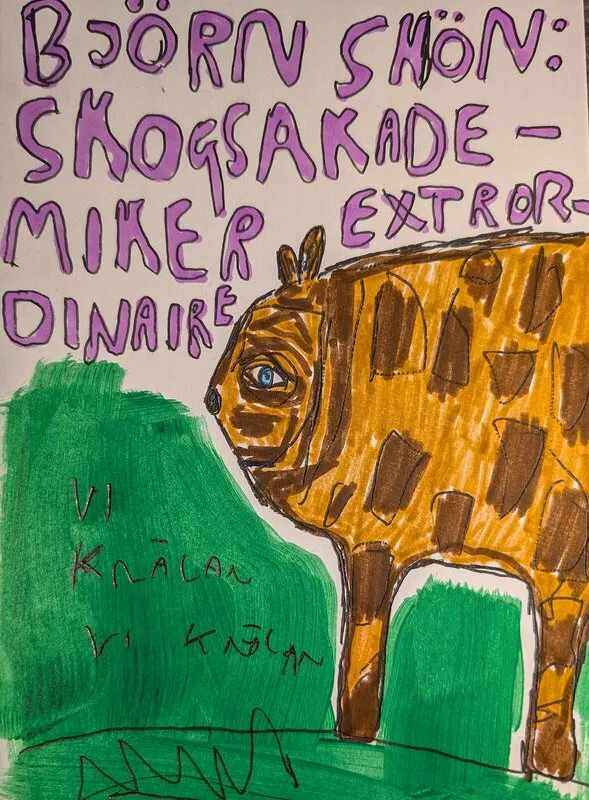 BJÖRN SHÖN:
SKOGSAKADE-
MIKER EXTROR-
DINAIRE
VI
KNÄCAN
VI KNÄCAN